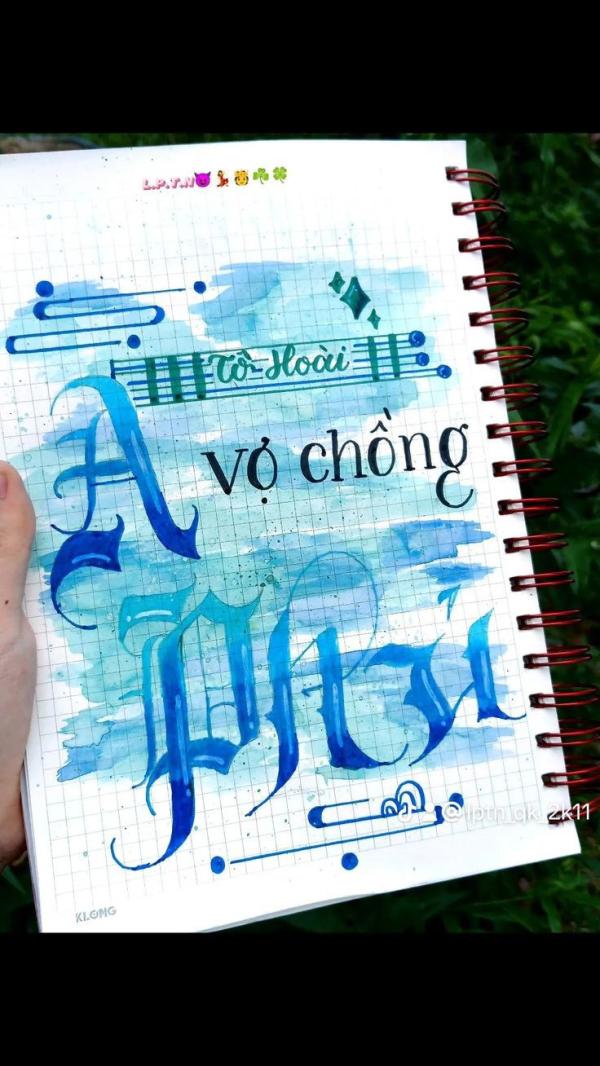 L.P.T.N😈💃🐯☘️🍀
Tô Hoài
vợ chồng
A
Phủ
@lptn_qk_2k11
KLONG